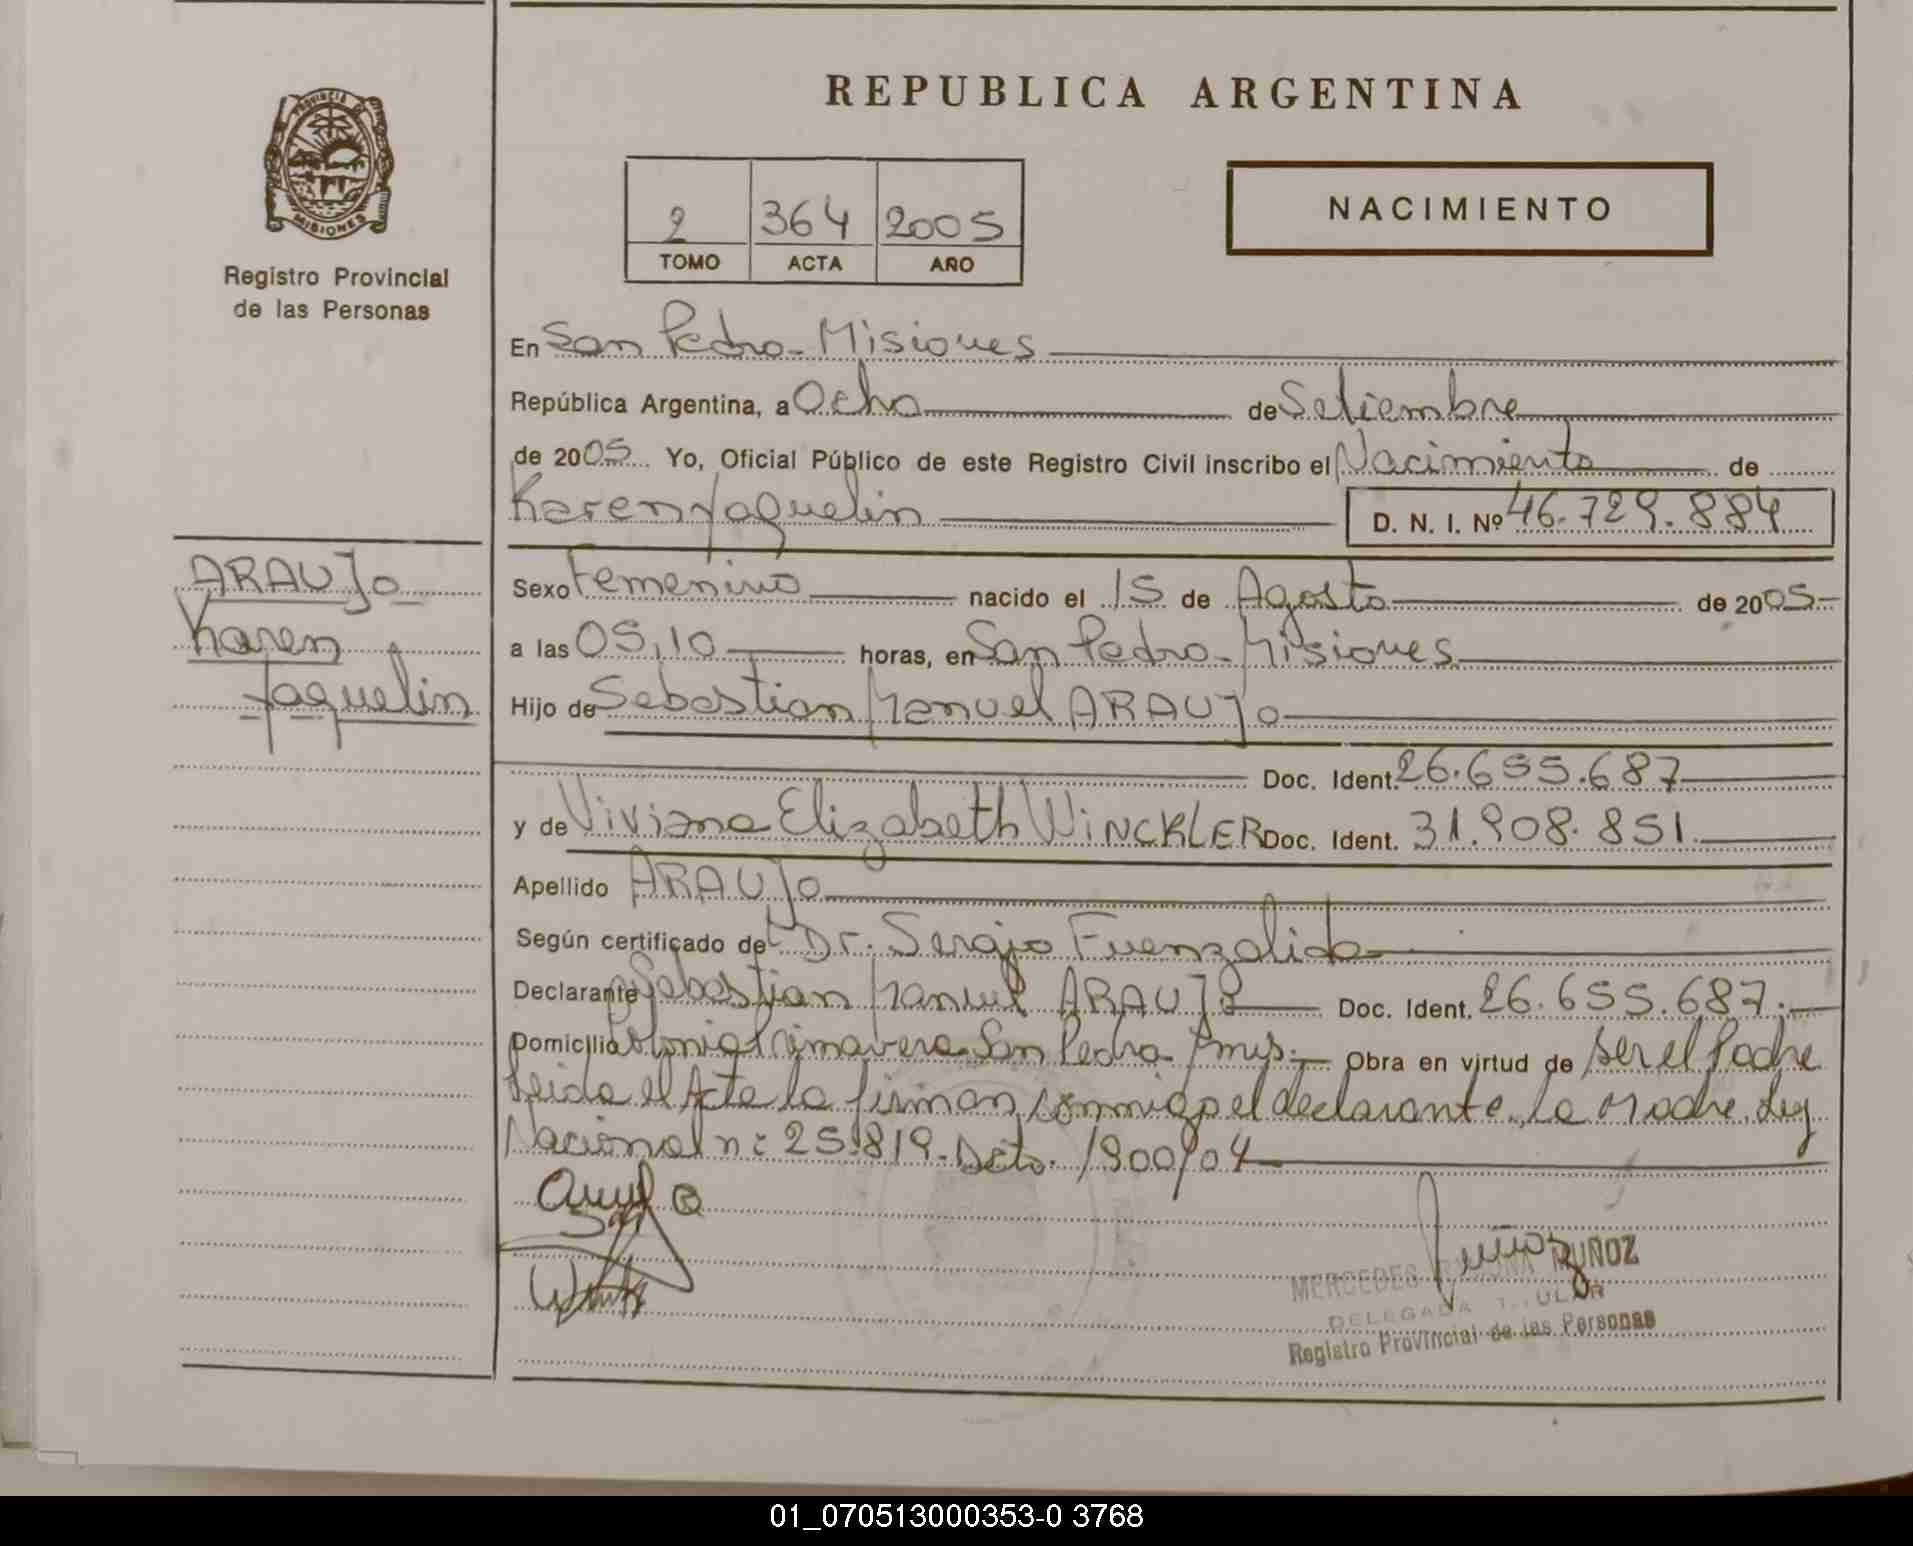 REPUBLICA ARGENTINA
PROVINCIA DE
MISIONES
Registro Provincial
de las Personas
2 364 2005
TOMO ACTA AÑO
NACIMIENTO
En San Pedro - Misiones
República Argentina, a Ocho de Setiembre
de 2005 Yo, Oficial Público de este Registro Civil inscribo el Nacimiento de
Karen Jaquelin D. N. I. Nº 46.729.884
ARAUJO
Karen
Jaquelin
Sexo Femenino nacido el 15 de Agosto de 2005
a las 05,10 horas, en San Pedro - Misiones
Hijo de Sebastian Manuel ARAUJO
Doc. Ident. 26.655.687
y de Viviana Elizabeth WINCKLER Doc. Ident. 31.908.851
Apellido ARAUJO
Según certificado del Dr. Sergio Fuenzalida
Declarante Sebastian Manuel ARAUJO Doc. Ident. 26.655.687.
Domicilio Colonia Primavera San Pedro Mnes. Obra en virtud de ser el Padre
Leida el Acta la firman conmigo el declarante, la Madre. Ley
Nacional nº 25.819. Dcto. 1900/04
MERCEDES MUÑOZ
DELEGADA TITULAR
Registro Provincial de las Personas
01_070513000353-0 3768